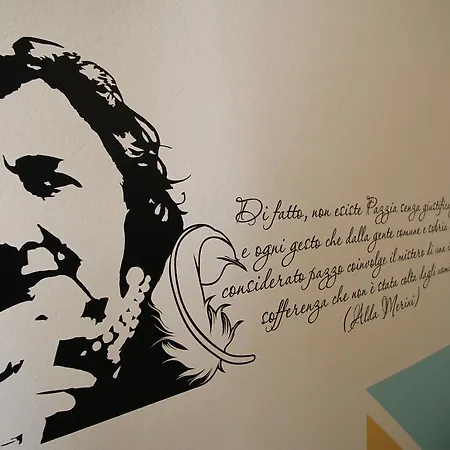 Di fatto, non esiste Pazzia senza
e ogni gesto che dalla gente comune e sobria
considerato pazzo coinvolge il mistero di una
sofferenza che non è stata colta dagli
(Alda Merini)